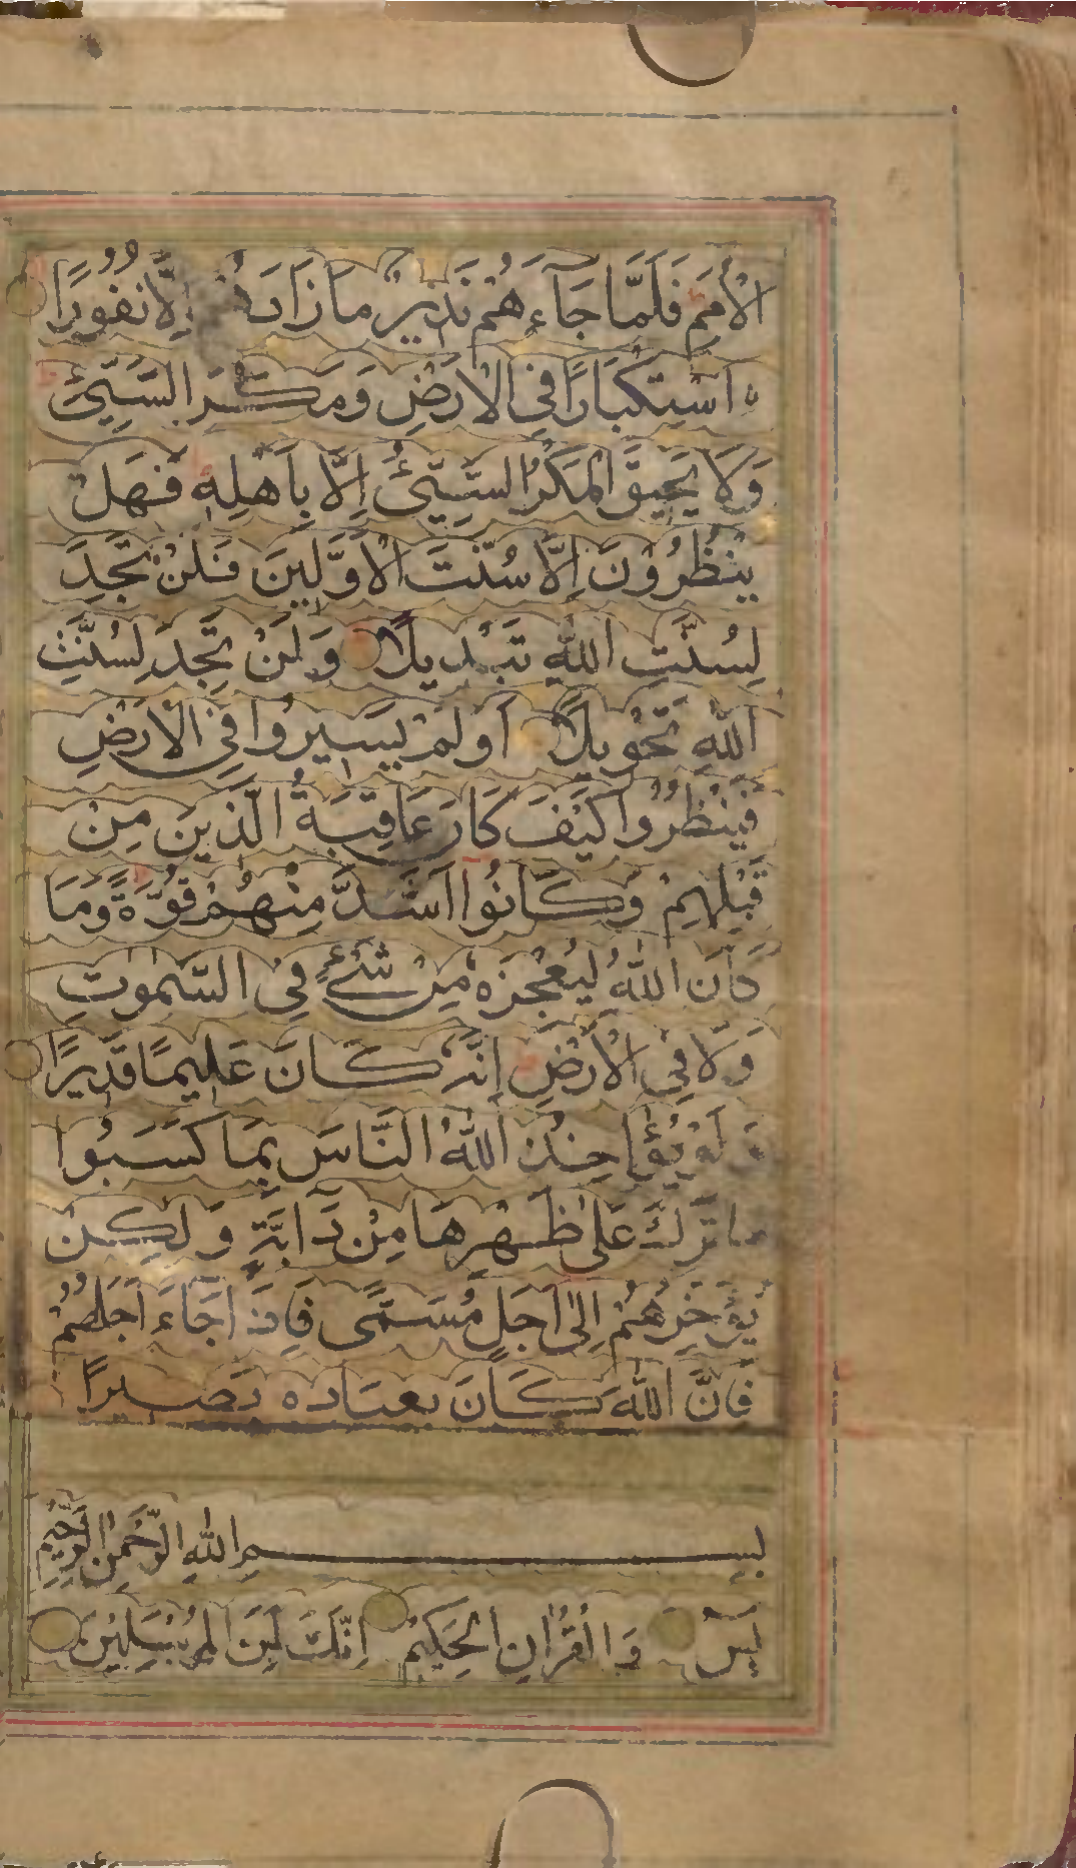 الْأُمَمِ فَلَمَّا جَآءَهُمْ نَذِيرٌ مَا زَادَهُمْ إِلَّا نُفُورًا
اسْتِكْبَارًا فِي الْاَرْضِ وَمَكْرَ السَّيِّئِ
وَلَا يَحِيقُ الْمَكْرُ السَّيِّئُ اِلَّا بِاَهْلِهٖ فَهَلْ
يَنْظُرُوْنَ اِلَّا سُنَّتَ الْاَوَّلِينَ فَلَنْ تَجِدَ
لِسُنَّتِ اللّٰهِ تَبْدِيلًا وَلَنْ تَجِدَ لِسُنَّتِ
اللّٰهِ تَحْوِيلًا اَوَلَمْ يَسِيرُوا فِي الْاَرْضِ
فَيَنْظُرُوا كَيْفَ كَانَ عَاقِبَةُ الَّذِينَ مِنْ
قَبْلِهِمْ وَكَانُوا اَشَدَّ مِنْهُمْ قُوَّةً وَمَا
كَانَ اللّٰهُ لِيُعْجِزَهُ مِنْ شَيْءٍ فِي السَّمٰوٰتِ
وَلَا فِي الْاَرْضِ اِنَّهُ كَانَ عَلِيمًا قَدِيرًا
وَلَوْ يُؤَاخِذُ اللّٰهُ النَّاسَ بِمَا كَسَبُوا
مَا تَرَكَ عَلٰى ظَهْرِهَا مِنْ دَآبَّةٍ وَلٰكِنْ
يُؤَخِّرُهُمْ اِلٰى اَجَلٍ مُسَمًّى فَاِذَا جَآءَ اَجَلُهُمْ
فَاِنَّ اللّٰهَ كَانَ بعباده بصيرًا
بِسْمِ اللّٰهِ الرَّحْمٰنِ الرَّحِيْمِ
يٰسٓ وَالْقُرْاٰنِ الْحَكِيْمِ اِنَّكَ لَمِنَ الْمُرْسَلِيْنَ